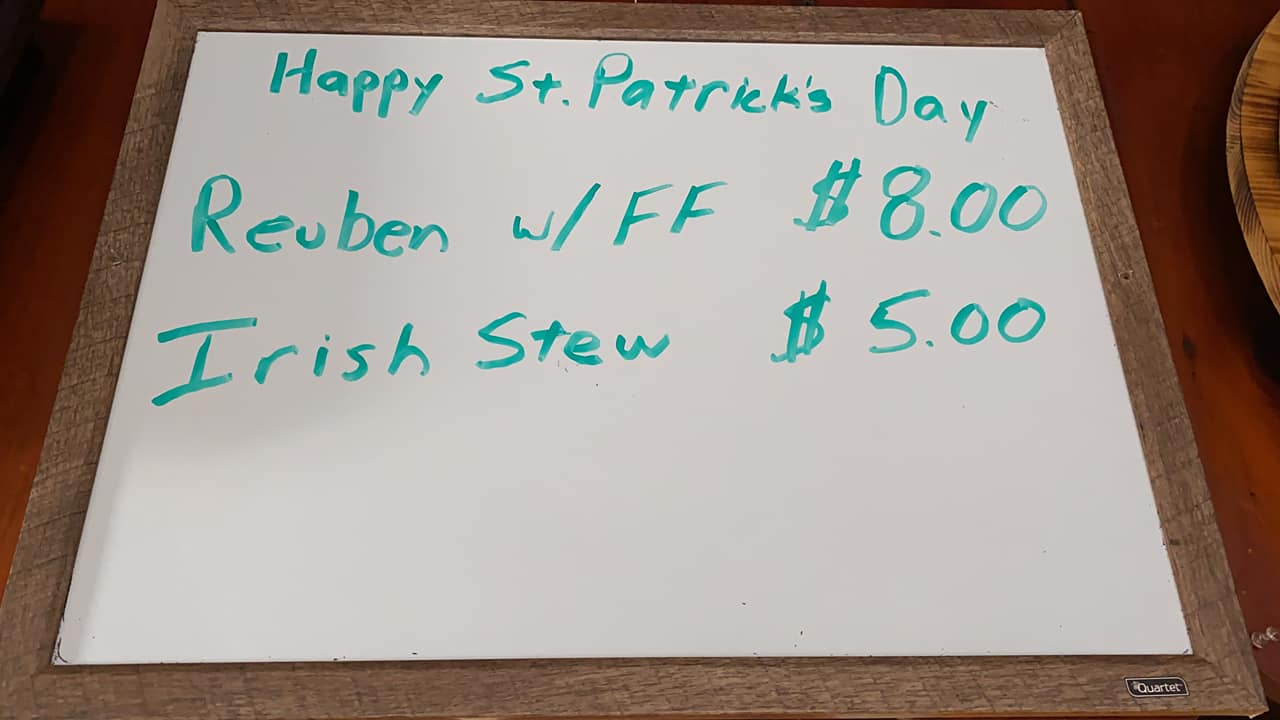 Happy St. Patrick's Day
Reuben w/ FF $8.00
Irish Stew $5.00
Quartet